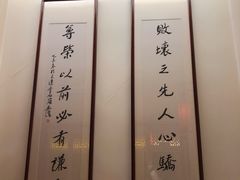 敗壞之先人心驕
尊榮以前必有謙